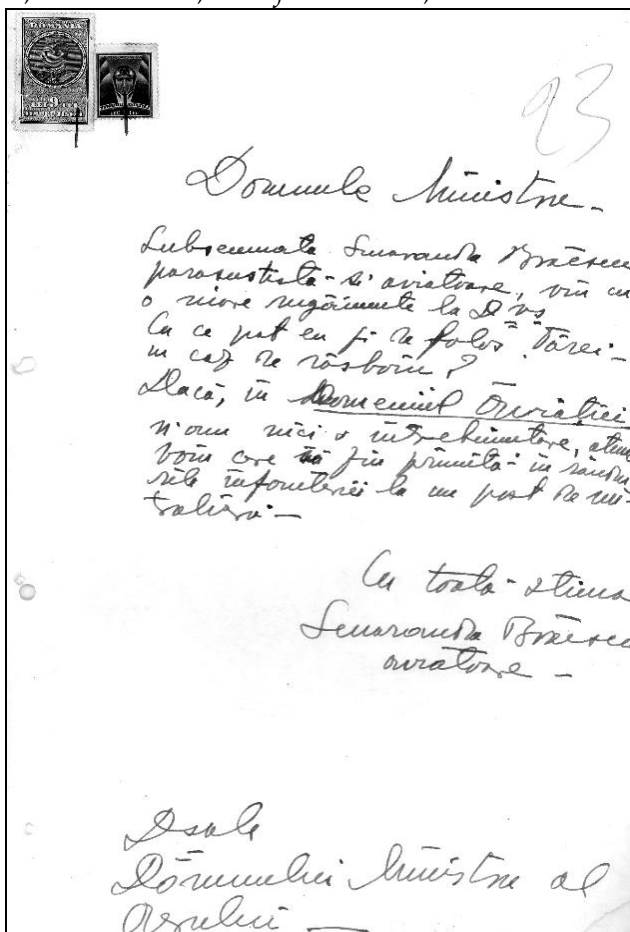 ROMÂNIA
93
Domnule Ministre -
Subsemnata Smaranda Brăescu
parasutistă - si aviatoare, vin cu
o mare rugăminte la D vs
Cu ce pot eu fi de folos Tărei -
in caz de răsboiu?
Dacă, în Domeniul Aviației
n'am nici o intrebuintare, atunci
voiu cere să fiu primită - in rându
rile infanteriei la un post de mi-
tralieră -
Cu toată - stima
Smaranda Brăescu
aviatoare -
Dsale
Domnului Ministru al